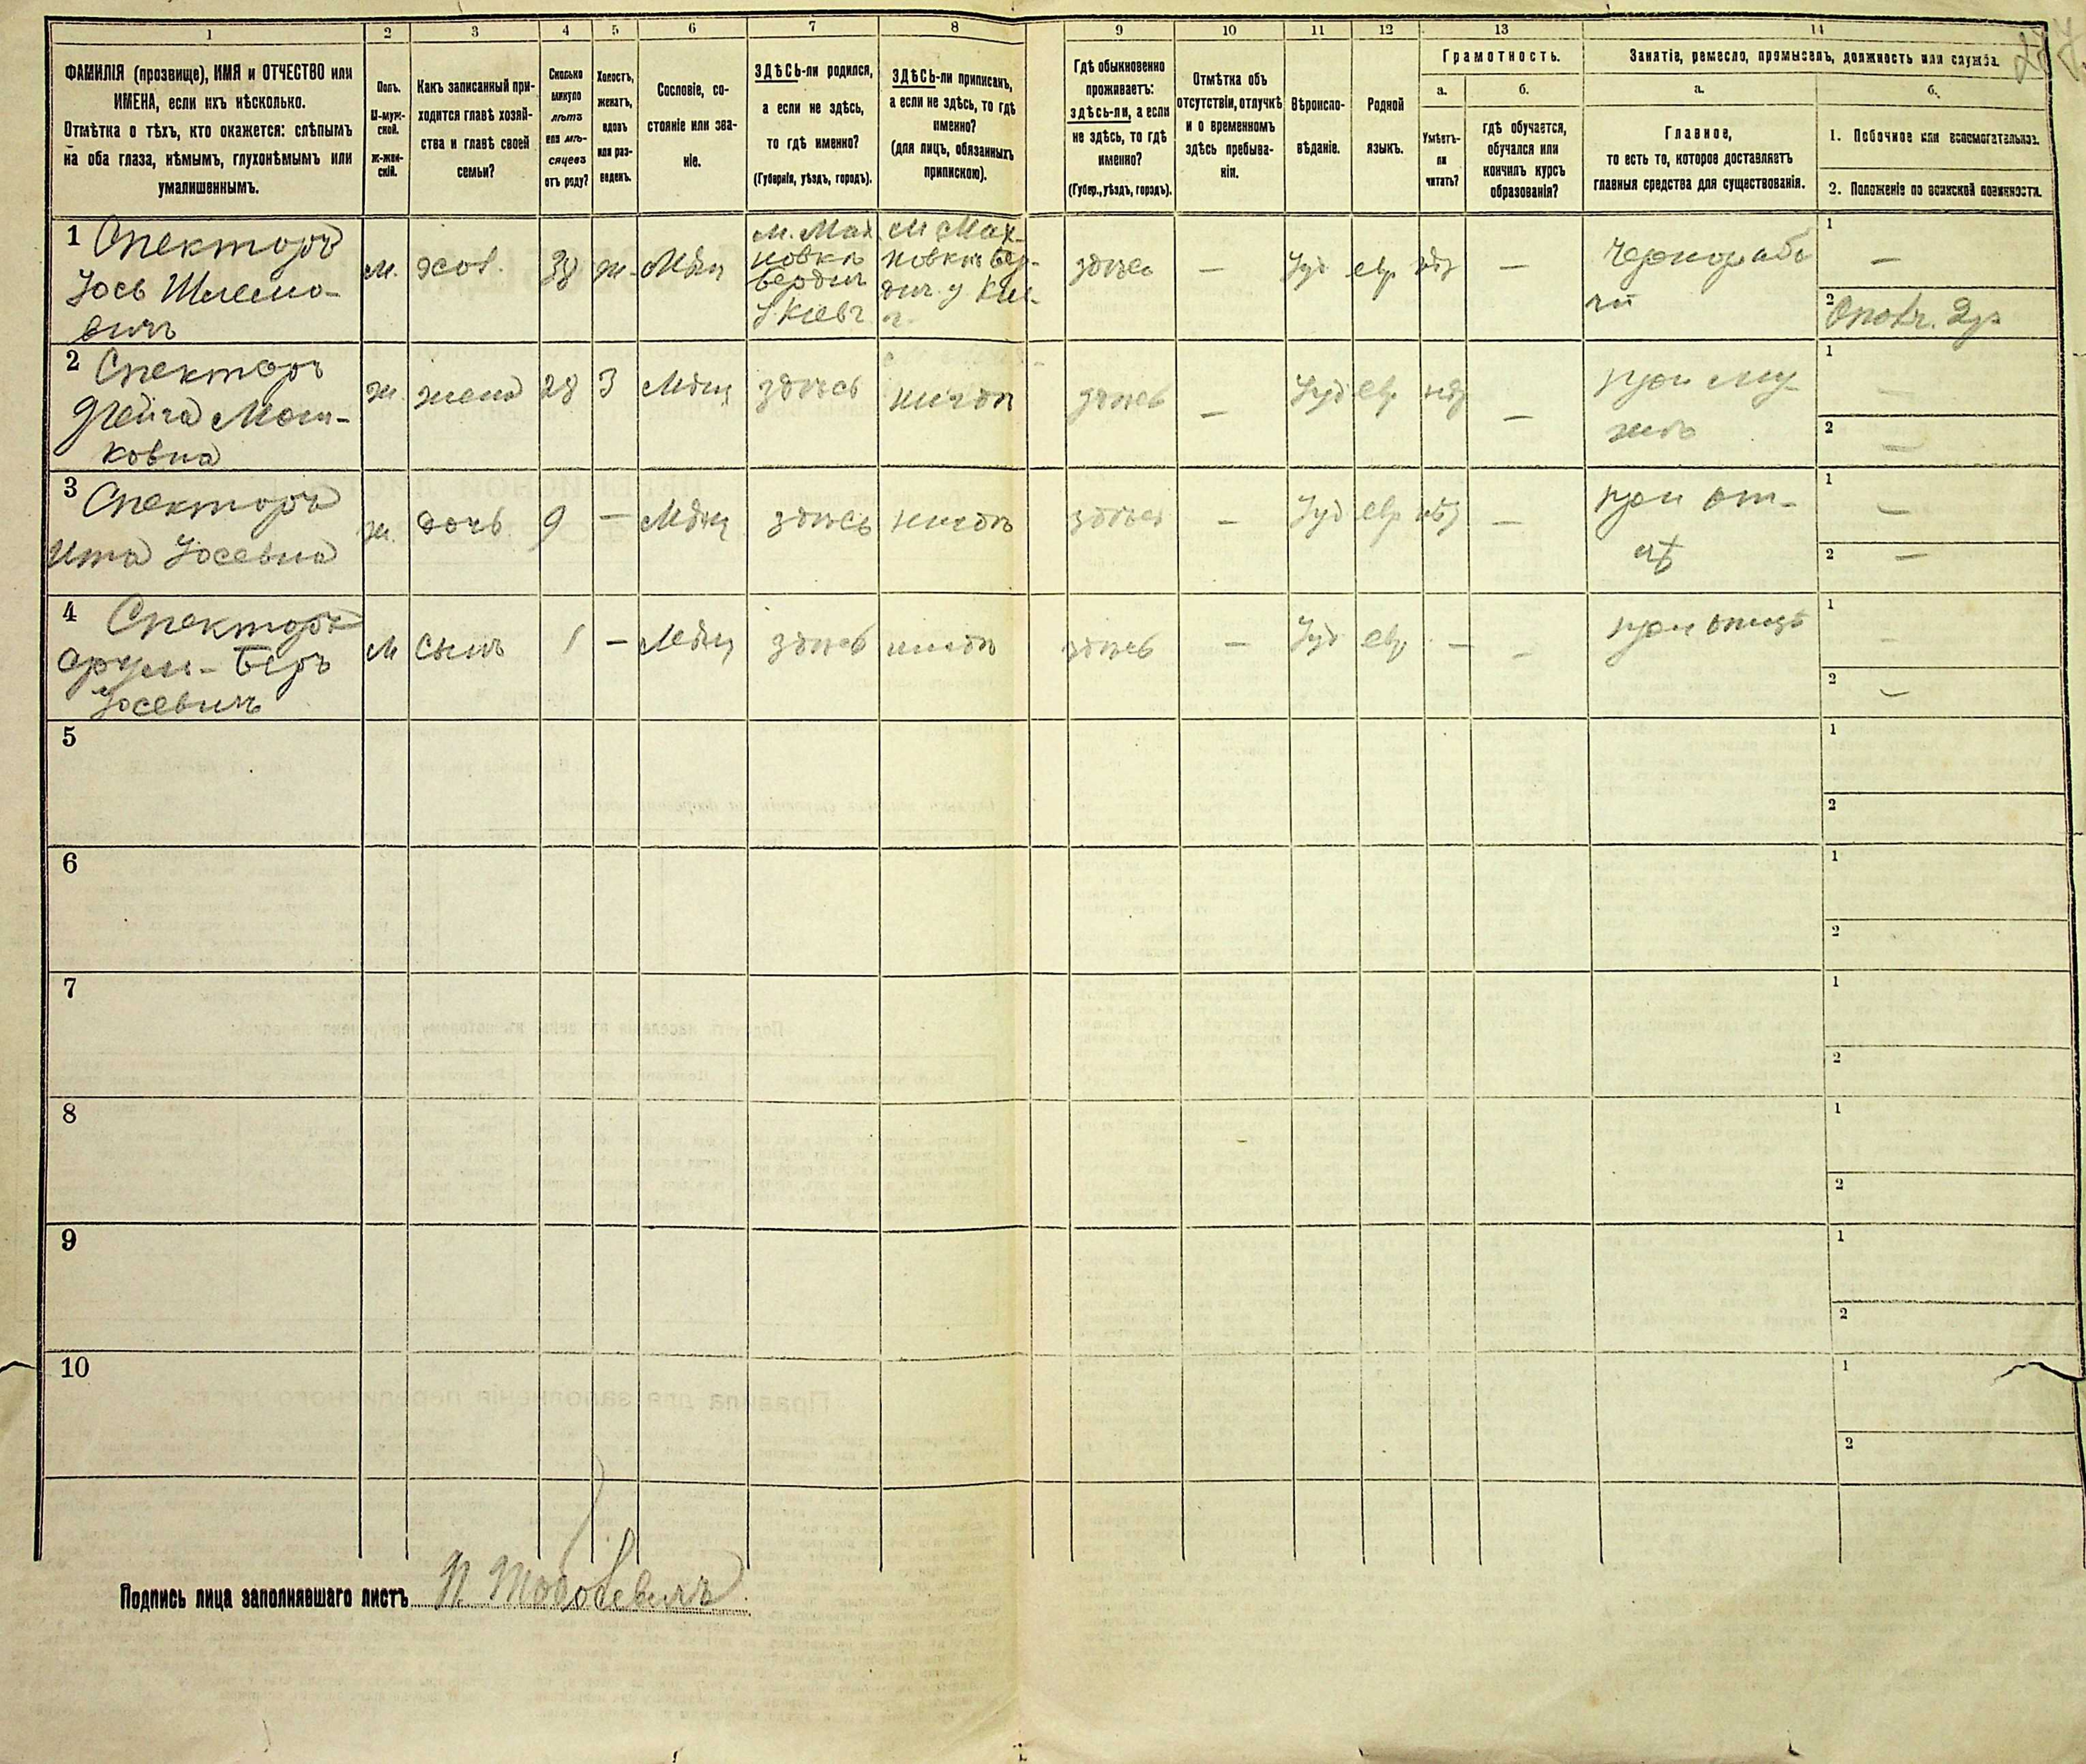 1 2 3 4 5 6 7 8 9 10 11 12 13 14
ФАМИЛІЯ (прозвище), ИМЯ и ОТЧЕСТВО или
ИМЕНА, если ихъ нѣсколько.
Отмѣтка о тѣхъ, кто окажется: слѣпымъ
на оба глаза, нѣмымъ, глухонѣмымъ или
умалишеннымъ.
Полъ.
М-муж-
ской.
Ж-жен-
скій.
Какъ записанный при-
ходится главѣ хозяй-
ства и главѣ своей
семьи?
Сколько
минуло
лѣтъ
или мѣ-
сяцевъ
отъ роду?
Холостъ,
женатъ,
вдовъ
или раз-
веденъ.
Сословіе, со-
стояніе или зва-
ніе.
ЗДѢСЬ-ли родился,
а если не здѣсь,
то гдѣ именно?
(Губернія, уѣздъ, городъ).
ЗДѢСЬ-ли приписанъ,
а если не здѣсь, то гдѣ
именно?
(для лицъ, обязанныхъ
припискою).
Гдѣ обыкновенно
проживаетъ:
здѣсь-ли, а если
не здѣсь, то гдѣ
именно?
(Губер., уѣздъ, городъ).
Отмѣтка объ
отсутствіи, отлучкѣ
и о временномъ
здѣсь пребыва-
ніи.
Вѣроиспо-
вѣданіе.
Родной
языкъ.
Грамотность.
а.
Умѣетъ-
ли
читать?
б.
гдѣ обучается,
обучался или
кончилъ курсъ
образованія?
Занятіе, ремесло, промыселъ, должность или служба.
а.
Главное,
то есть то, которое доставляетъ
главныя средства для существованія.
б.
1. Побочное или вспомогательное.
2. Положеніе по воинской повинности.
1 Спекторъ
Іось Шлемо-
вичъ
м.
хоз.
38
ж.
Мѣщ
м. Мах
новка
Бердич
у Кіевг
м Мах-
новка Бер-
дич. у Кіе-
г.
здѣсь
—
Іуд
евр
нѣт
—
Чернорабо
чій
1
—
2
2 Спекторъ
Мош-
ковна
ж.
жена
28
З
Мѣщ
здѣсь
тогдѣ
здѣсь
—
Іуд
евр
нѣт
—
при му-
жѣ
1
—
2
—
3 Спекторъ
Ита Іосевна
ж.
дочь
9
—
Мѣщ
здѣсь
тогдѣ
здѣсь
—
Іуд
евр
нѣт
—
при от-
цѣ
1
—
2
—
4 Спекторъ
Срул-Беръ
Іосевичъ
м
сынъ
1
—
Мѣщ
здѣсь
тогдѣ
здѣсь
—
Іуд
евр
—
—
при отцѣ
1
—
2
—
5
1
2
6
1
2
7
1
2
8
1
2
9
1
2
10
1
2
Подпись лица заполнявшаго листъ